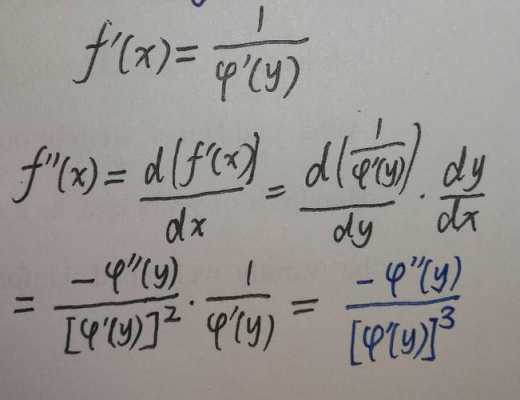 f'(x) = 1/φ'(y)
f''(x) = d(f'(x))/dx = d(1/φ'(y))/dy · dy/dx
= -φ''(y)/[φ'(y)]² · 1/φ'(y) = -φ''(y)/[φ'(y)]³